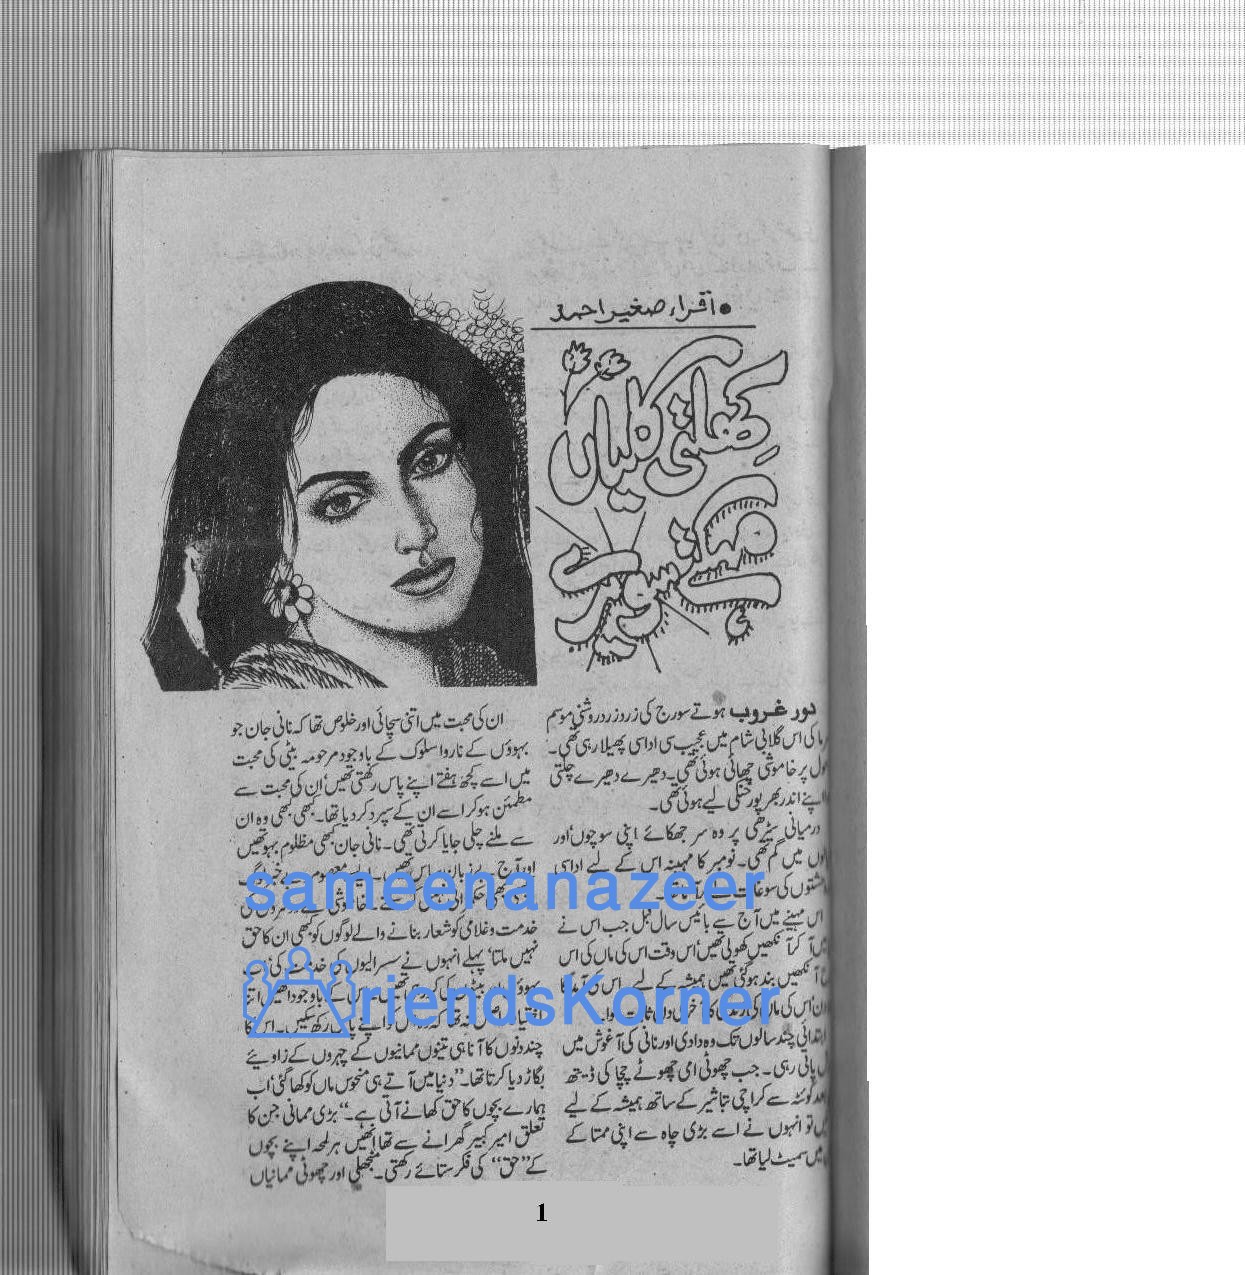 اقراء صغیر احمد
کھلتی کلیاں
دور غروب ہوتے سورج کی زرد زرد روشنی موسم
کی اس گلابی شام میں عجیب سی اداسی پھیلا رہی تھی۔
پر خاموشی چھائی ہوئی تھی۔ دھیرے دھیرے چلتی
اپنے اندر بھرپور خنکی لیے ہوئی تھی۔
درمیانی سیڑھی پر وہ سر جھکائے اپنی سوچوں اور
میں گم تھی۔ نومبر کا مہینہ اس کے لیے اداسی
کی سوغات
اس مہینے میں آج سے بائیس سال قبل جب اس نے
آ کر آنکھیں کھولی تھیں اس وقت اس کی ماں کی اس
آنکھیں بند ہو گئی تھیں ہمیشہ کے لیے۔ اس کی آمد کا
اس کی ماں کی زندگی کا آخری دن
ابتدائی چند سالوں تک وہ دادی اور نانی کی آغوش میں
پاتی رہی۔ جب چھوٹی امی چھوٹے چچا کی ڈیتھ
کوئٹہ سے کراچی تباشیر کے ساتھ ہمیشہ کے لیے
تو انہوں نے اسے بڑی چاہ سے اپنی ممتا کے
میں سمیٹ لیا تھا۔
ان کی محبت میں اتنی سچائی اور خلوص تھا کہ نانی جان جو
بہوؤں کے ناروا سلوک کے باوجود مرحومہ بیٹی کی محبت
میں اسے کچھ ہفتے اپنے پاس رکھتی تھیں ان کی محبت سے
مطمئن ہو کر اسے ان کے سپرد کر دیا تھا۔ کبھی کبھی وہ ان
سے ملنے چلی جایا کرتی تھی۔ نانی جان کبھی مظلوم بہو تھیں
اور آج بے زبان ساس تھیں۔
خدمت و غلامی کو شعار بنانے والے لوگوں کو کبھی ان کا حق
نہیں ملتا‘ پہلے انہوں نے سسرالیوں کی خدمت کی‘ اب
کے باوجود انہیں اتنا
اختیار حاصل نہ تھا کہ وہ اس کو اپنے پاس رکھ سکیں۔ اس کا
چند دنوں کا آنا ہی تینوں ممانیوں کے چہروں کے زاویئے
بگاڑ دیا کرتا تھا۔ ”دنیا میں آتے ہی منحوس ماں کو کھا گئی‘ اب
ہمارے بچوں کا حق کھانے آتی ہے۔“ بڑی ممانی جن کا
تعلق امیر کبیر گھرانے سے تھا انہیں ہر لمحہ اپنے بچوں
کے ”حق“ کی فکر ستائے رکھتی۔ منجھلی اور چھوٹی ممانیاں
sameenanazeer
riendsKorner
1